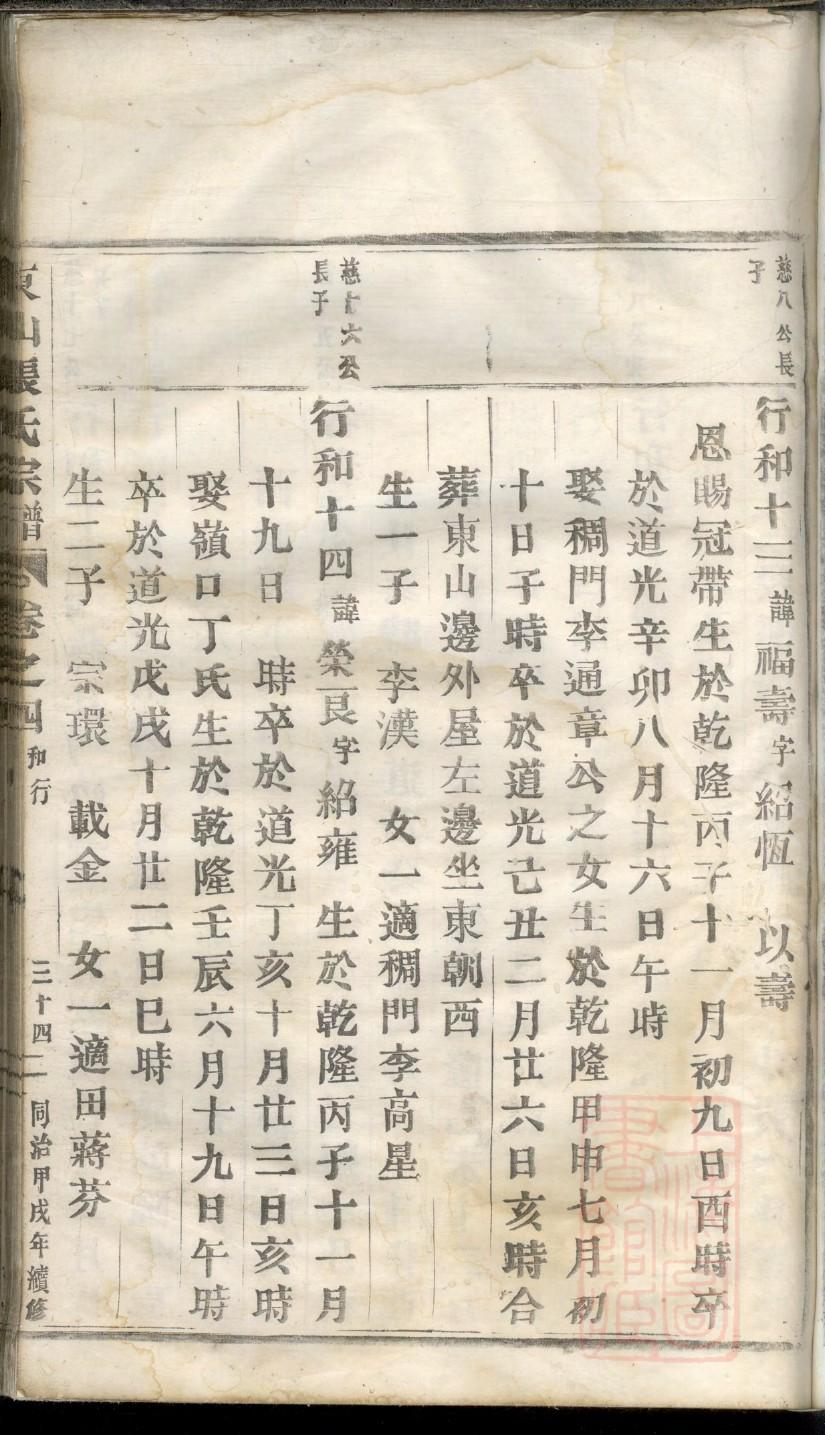 慈八公長
子
行和十三諱福壽字紹恆　以壽
恩賜冠帶生於乾隆丙子十一月初九日酉時卒
於道光辛卯八月十六日午時
娶稠門李通章公之女生於乾隆甲申七月初
十日子時卒於道光己丑二月廿六日亥時合
葬東山邊外屋左邊坐東朝西
生一子　李漢　女一適稠門李高星
慈十六公
長子
行和十四諱榮良字紹雍　生於乾隆丙子十一月
十九日　時卒於道光丁亥十月廿三日亥時
娶嶺口丁氏生於乾隆壬辰六月十九日午時
卒於道光戊戌十月廿二日巳時
生二子　宗環　載金　女一適田蔣芬
東山張氏宗譜　卷之四　和行　三十四　同治甲戌年續修